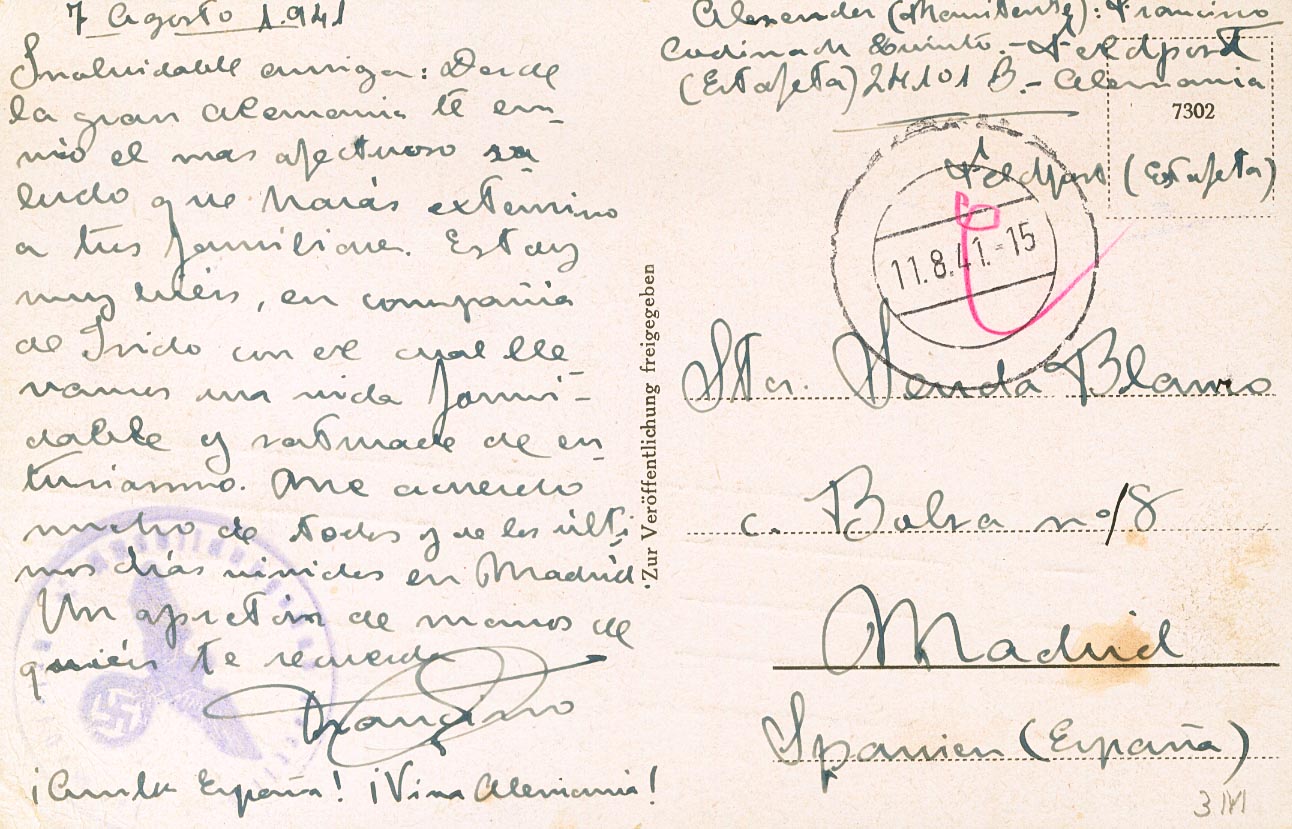 7 Agosto 1.941
Inolvidable amiga: Desde
la gran Alemania te en-
vio el mas afectuoso sa
ludo que harás extensivo
a tus familiares. Estoy
muy bién, en compañia
de con el cual lle
vamos una vida formi-
dable y saturada de en-
tusiasmo. Me acuerdo
mucho de todos y de los últi
mos días vividos en Madrid.
Un apretón de manos de
quién te recuerda
Francisco
¡Arriba España! ¡Viva Alemania!
Zur Veröffentlichung freigegeben
(Remitente): Francisco
Codina de -Feldpost
(Estafeta) 24101 B.- Alemania
7302
Feldpost (Estafeta)
11.8.41.-15
Blanco
c. Bolsa nº 8
Madrid
Spanien (España)